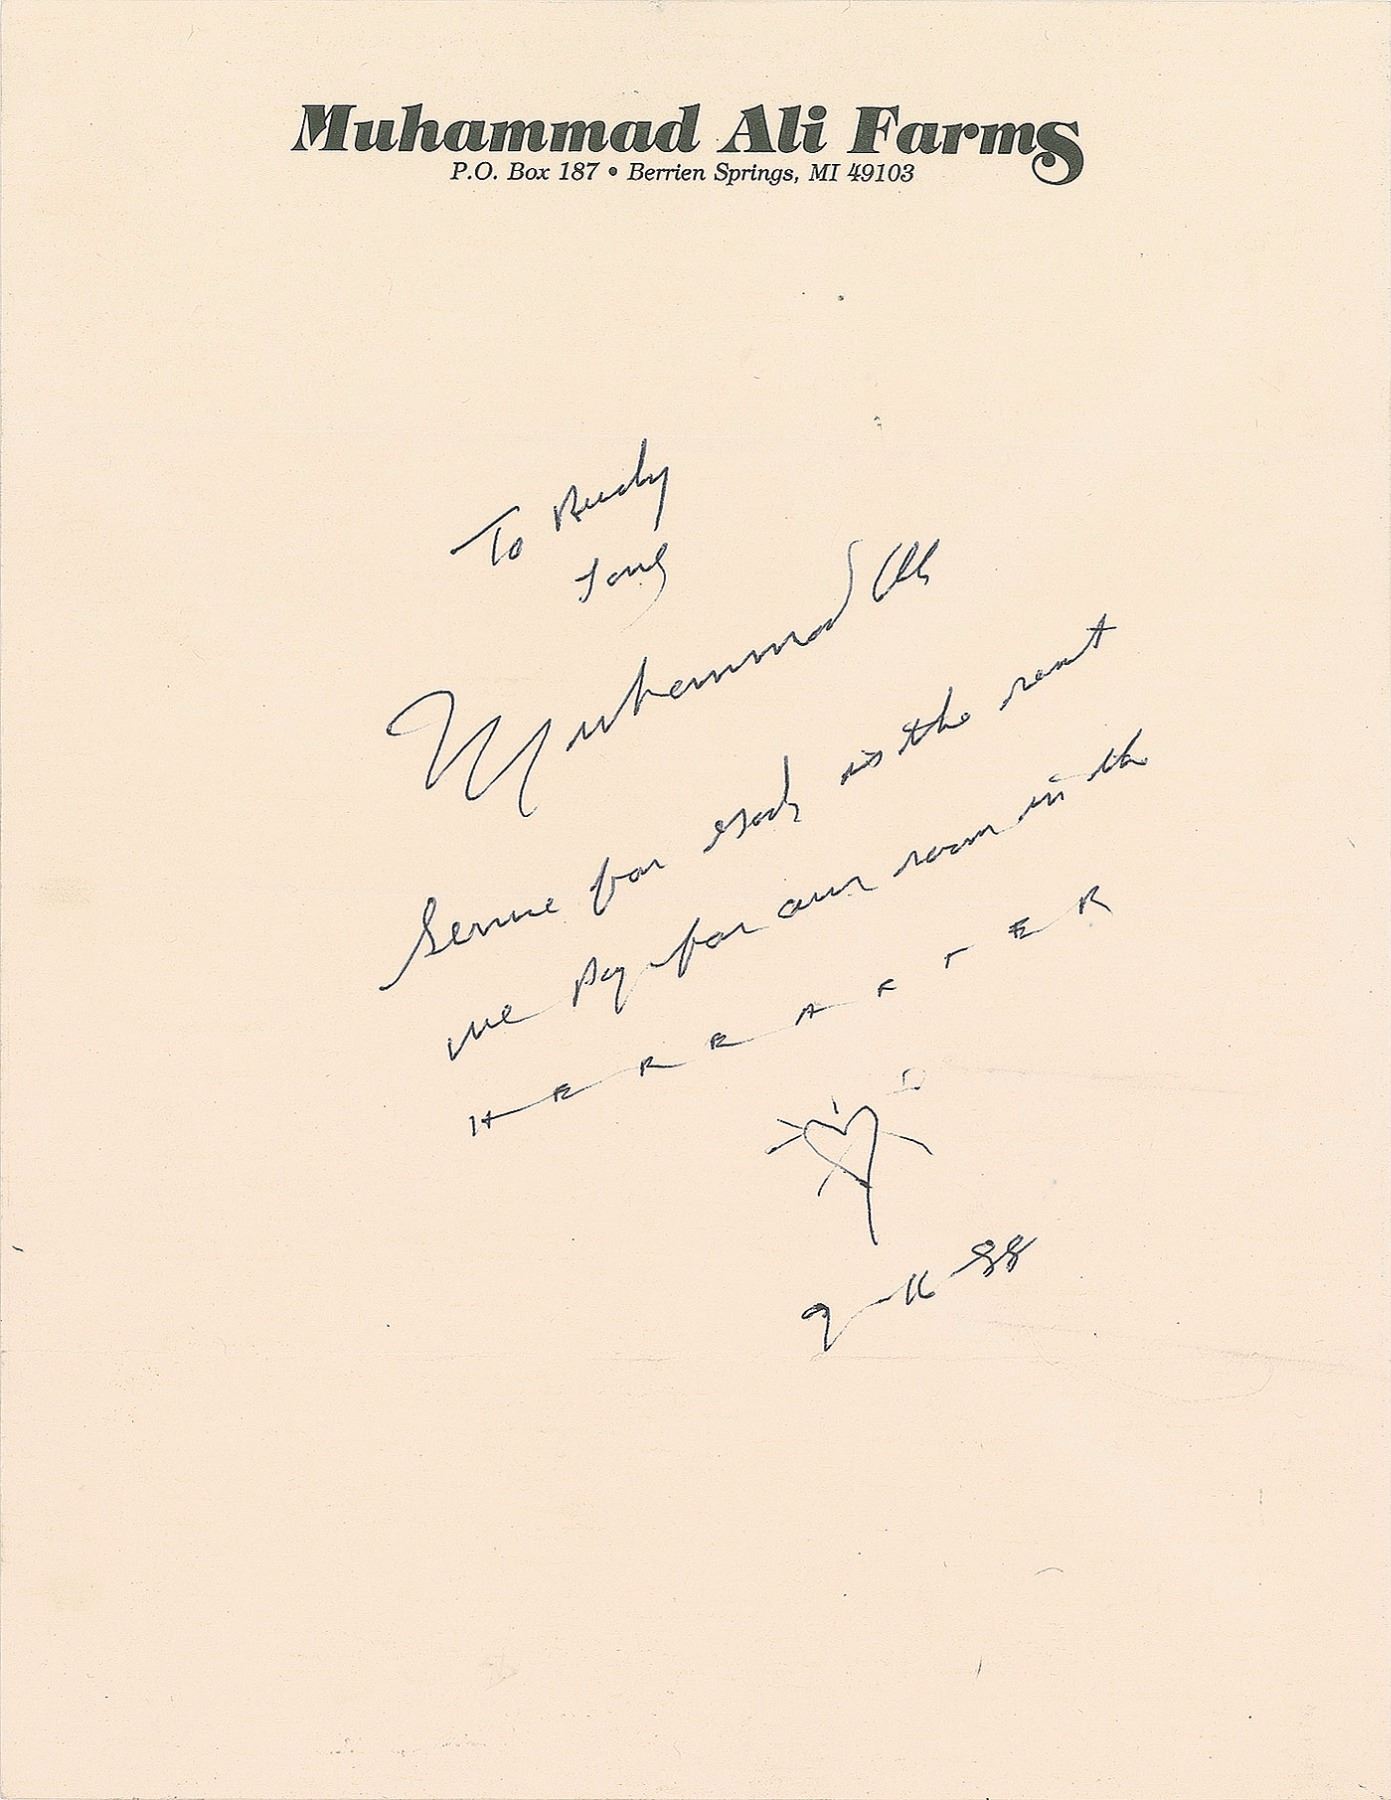 Muhammad Ali Farms
P.O. Box 187 • Berrien Springs, MI 49103
To Rudy
Muhammad Ali
Servue for is the reant
we pay for our room in the
HERRAFTER
88